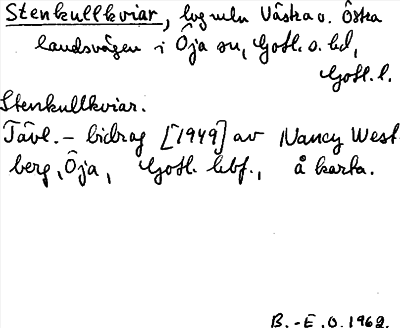 Stenkullkviar, log mln Västra o. Östra
landsvägen i Öja sn, Gotl. s. hd,
Gotl. l.
Stenkullkviar.
Tävl.- bidrag [1949] av Nancy West-
berg, Öja, Gotl. hbf., å karta.
B.-E.O. 1962.